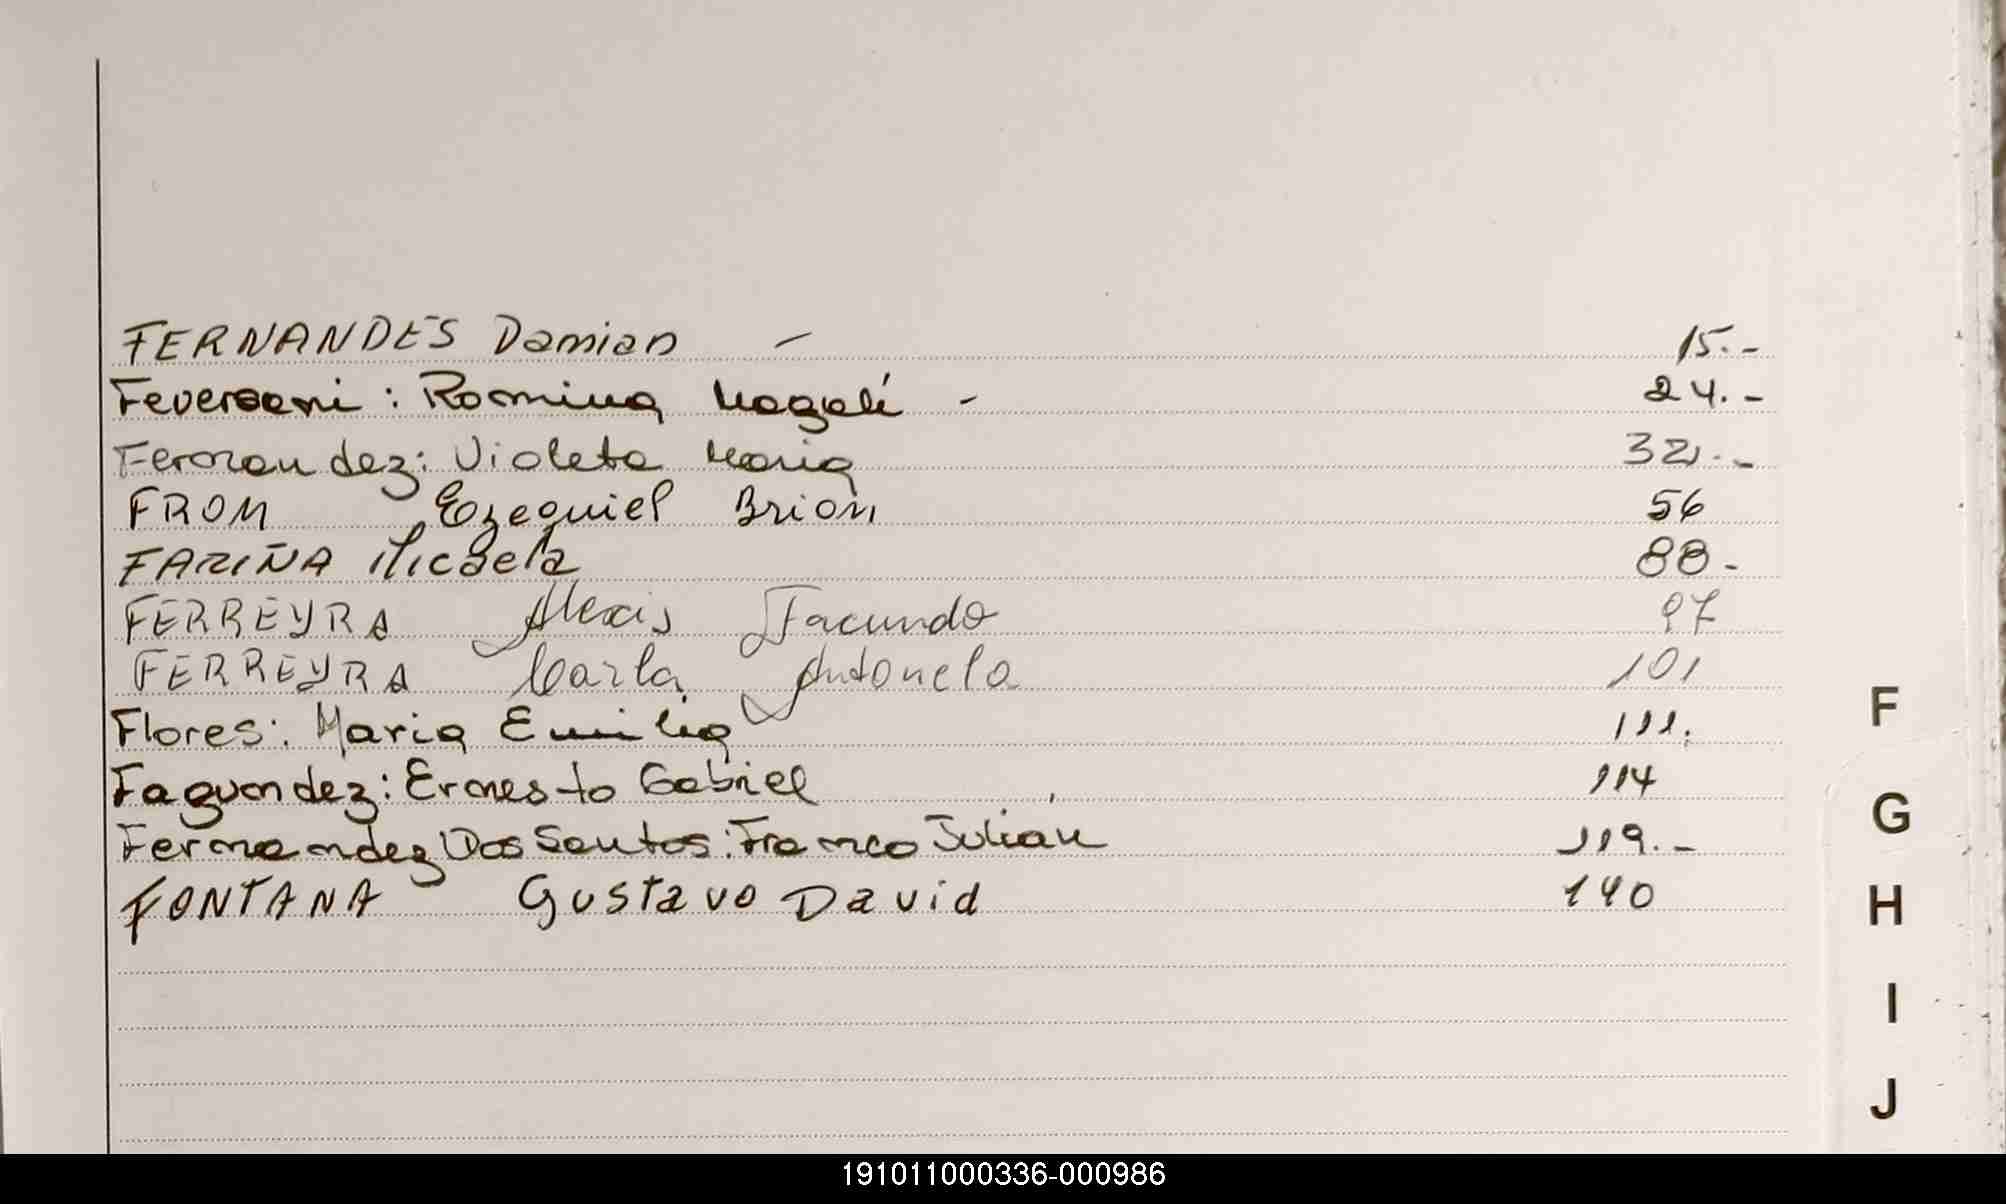 FERNANDES Damian - 15.-
Feversani: Romina Magalí - 24.-
Fernandez: Violeta Maria 32.-
FROM Ezequiel Brian 56
FARIÑA Micaela 88-
FERREYRA Alexis Facundo 97
FERREYRA Carla Antonela 101
Flores: Maria Emilia 111.
Faguondez: Ernesto Gabriel 114
Fernandez Dos Santos: Franco Julián 119.-
FONTANA Gustavo David 140
F
G
H
I
J
191011000336-000986